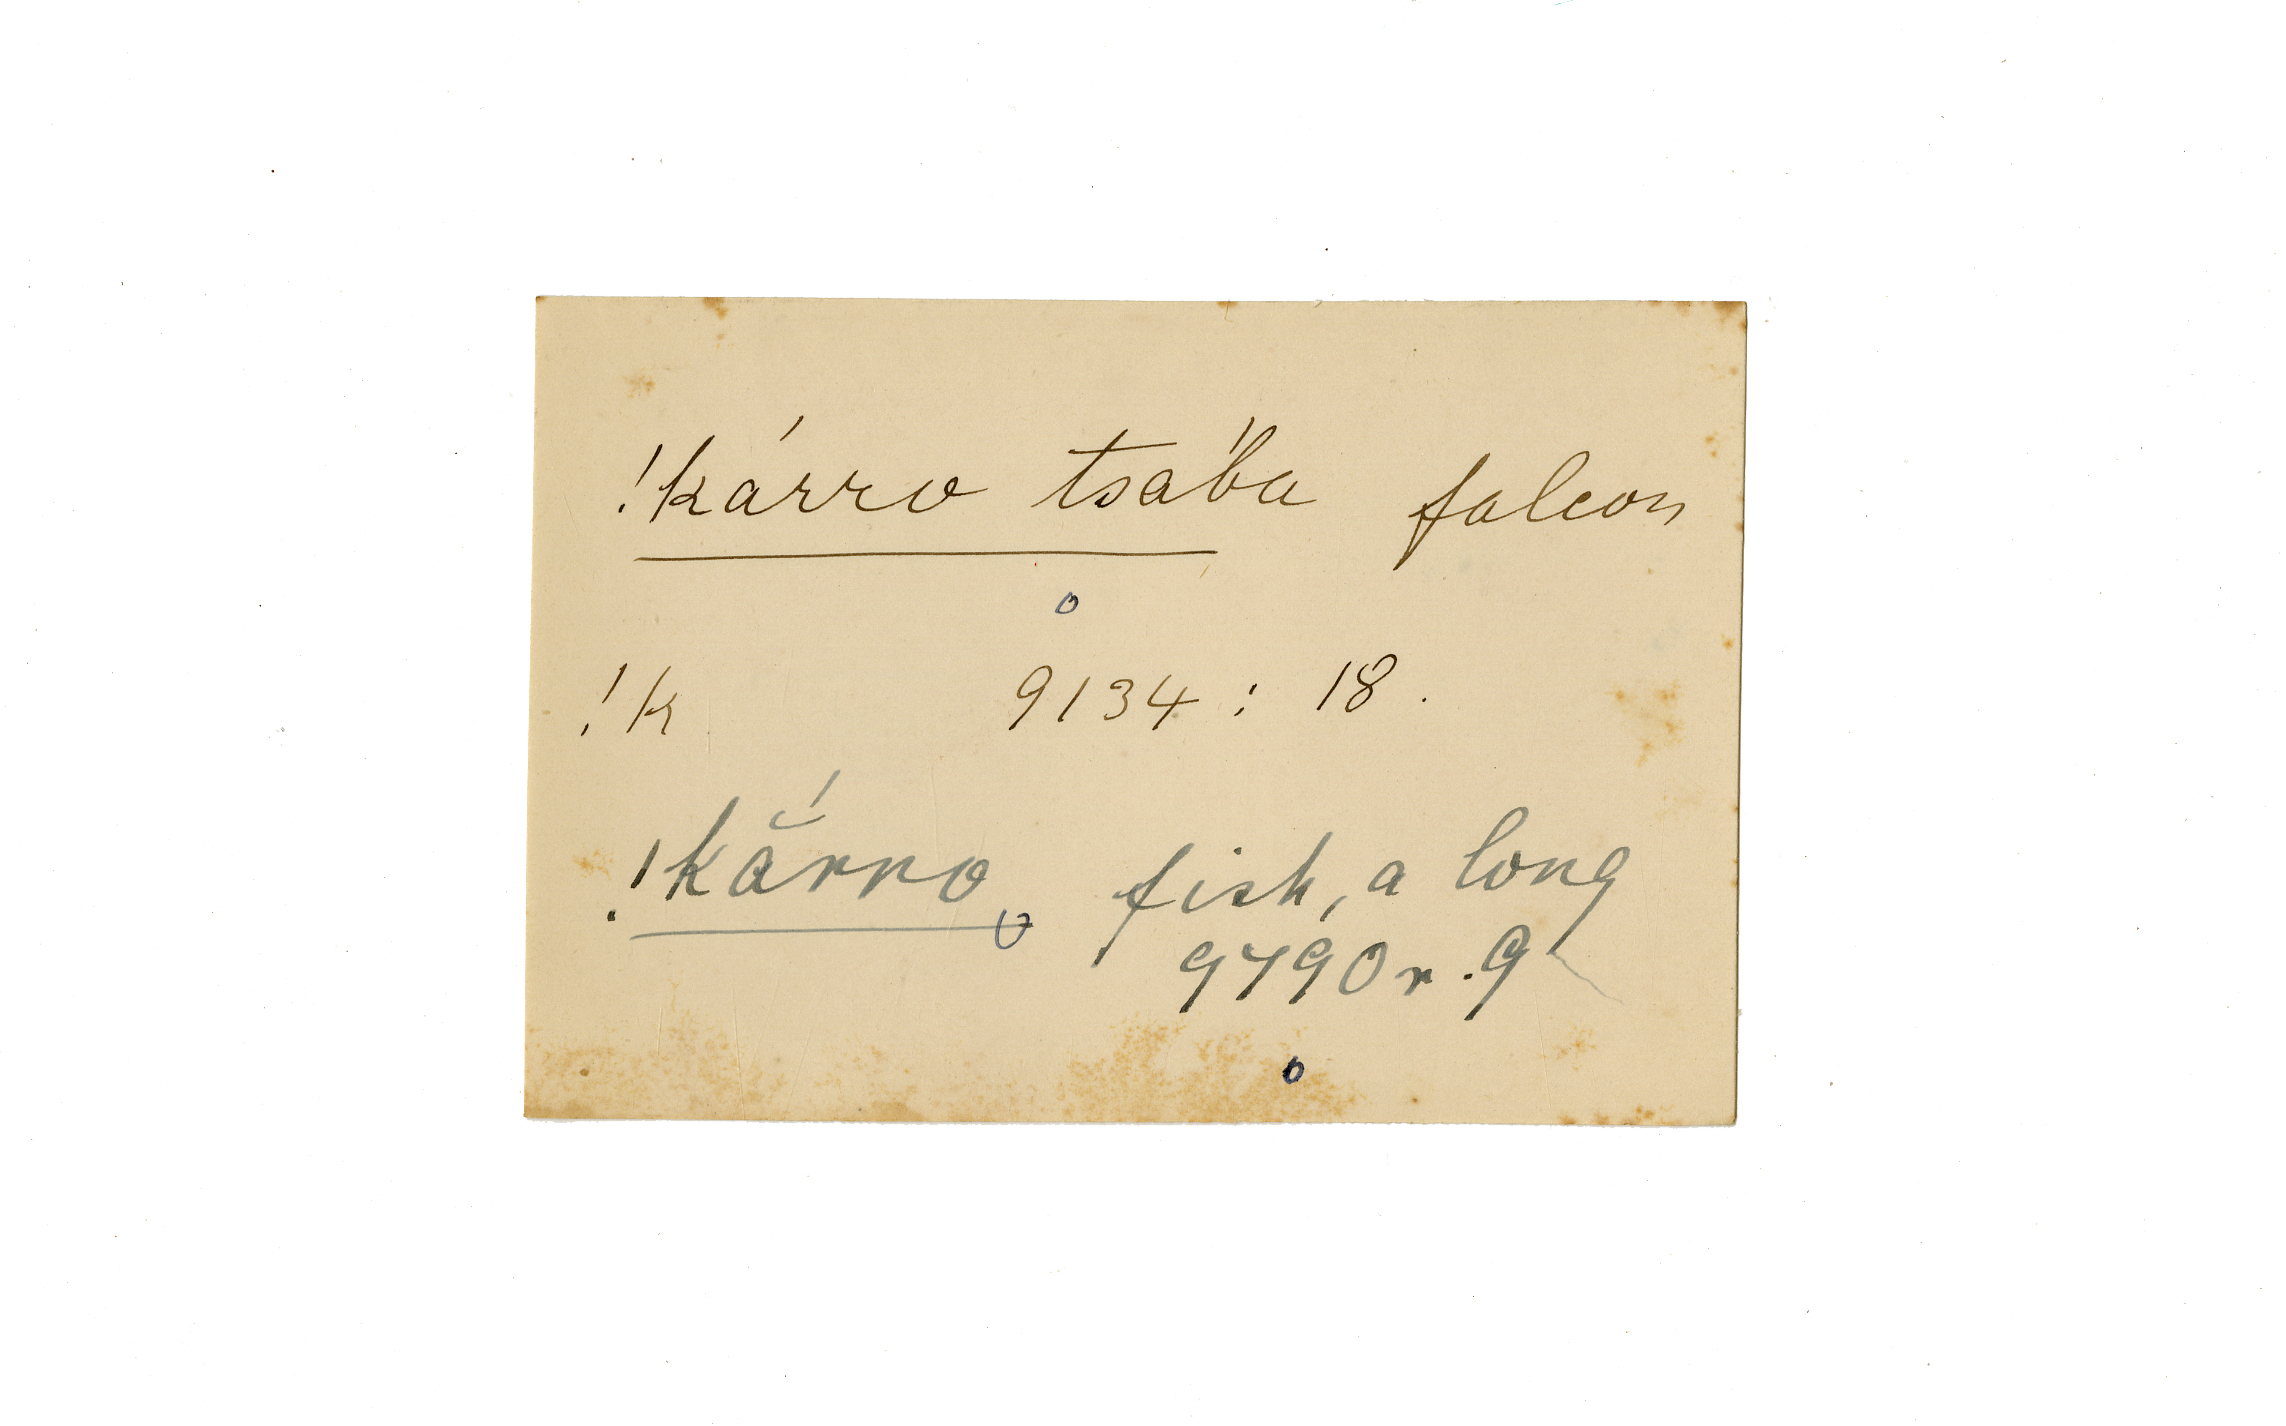 !kárro tsába falcon
o
!k 9134 : 18 .
!kắrro fish, a long
9790 r. 9
o